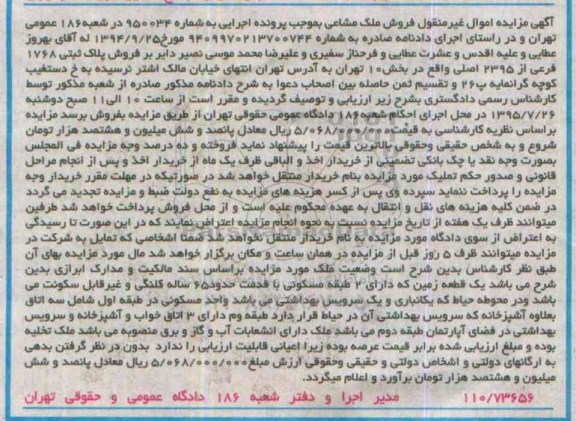 آگهی مزایده اموال غیرمنقول فروش ملک مشاعی بموجب پرونده اجرایی به شماره 950034 در شعبه 186 عمومی
تهران و در راستای اجرای دادنامه صادره به شماره 9409970213700744 مورخ 1394/9/25 له آقای بهروز
عطایی و علیه اقدس و عشرت عطایی و فرحناز سفیری و علیرضا محمد موسی نصیر دایر بر فروش پلاک ثبتی 1768
فرعی از 2395 اصلی واقع در بخش 10 تهران به آدرس تهران انتهای خیابان مالک اشتر نرسیده به خ دستغیب
کوچه گرانمایه پ 26 و تقسیم ثمن حاصله بین اصحاب دعوا به شرح دادنامه مذکور صادره از شعبه مذکور توسط
کارشناس رسمی دادگستری بشرح زیر ارزیابی و توصیف گردیده و مقرر است از ساعت 10 الی 11 صبح دوشنبه
1395/7/26 در محل اجرای احکام شعبه 186 دادگاه عمومی حقوقی تهران از طریق مزایده بفروش برسد مزایده
براساس نظریه کارشناسی به قیمت 5/068/000/000 ریال معادل پانصد و شش میلیون و هشتصد هزار تومان
شروع و به شخص حقیقی وحقوقی بالاترین قیمت را پیشنهاد نماید فروخته و ده درصد وجه مزایده فی المجلس
بصورت وجه نقد یا چک بانکی تضمینی از خریدار اخذ و الباقی ظرف یک ماه از خریدار اخذ و پس از انجام مراحل
قانونی و صدور حکم تملیک مورد مزایده بنام خریدار منتقل خواهد شد در صورتیکه در مهلت مقرر خریدار وجه
مزایده را پرداخت ننماید سپرده وی پس از کسر هزینه های مزایده به نفع دولت ضبط و مزایده تجدید می گردد
در ضمن کلیه هزینه های نقل و انتقال به عهده محکوم علیه است و از محل فروش پرداخت خواهد شد طرفین
میتوانند ظرف یک هفته از تاریخ مزایده نسبت به نحوه انجام مزایده اعتراض نمایند که در این صورت تا رسیدگی
به اعتراض از سوی دادگاه مورد مزایده به نام خریدار منتقل نخواهد شد ضمنا اشخاصی که تمایل به شرکت در
مزایده میتوانند ظرف 5 روز قبل از مزایده در همان ساعت و مکان برگزار خواهد شد مال مورد مزایده بهای آن
طبق نظر کارشناس بدین شرح است وضعیت ملک مورد مزایده براساس سند مالکیت و مدارک ابرازی بدین
شرح می باشد یک قطعه زمین که دارای 2 طبقه مسکونی با قدمت حدود 65 ساله کلنگی و غیرقابل سکونت می
باشد ودر محوطه حیاط که یکانباری و یک سرویس بهداشتی می باشد واحد مسکونی در طبقه اول شامل سه اتاق
بعلاوه آشپزخانه که سرویس بهداشتی آن در حیاط قرار دارد طبقه وم دارای 3 اتاق خواب و آشپزخانه و سرویس
بهداشتی در فضای آپارتمان طبقه دوم می باشد ملک دارای انشعابات آب و گاز و برق منصوبه می باشد ملک تخلیه
بوده و مبلغ ارزیابی شده برابر قیمت عرصه بوده زیرا اعیانی قابلیت ارزیابی را ندارد بدون در نظر گرفتن بدهی
به ارگانهای دولتی و اشخاص دولتی و حقیقی وحقوقی ارزش مبلغ 5/068/000/000 ریال معادل پانصد و شش
میلیون و هشتصد هزار تومان برآورد و اعلام میگردد.
110/73656 مدیر اجرا و دفتر شعبه 186 دادگاه عمومی و حقوقی تهران